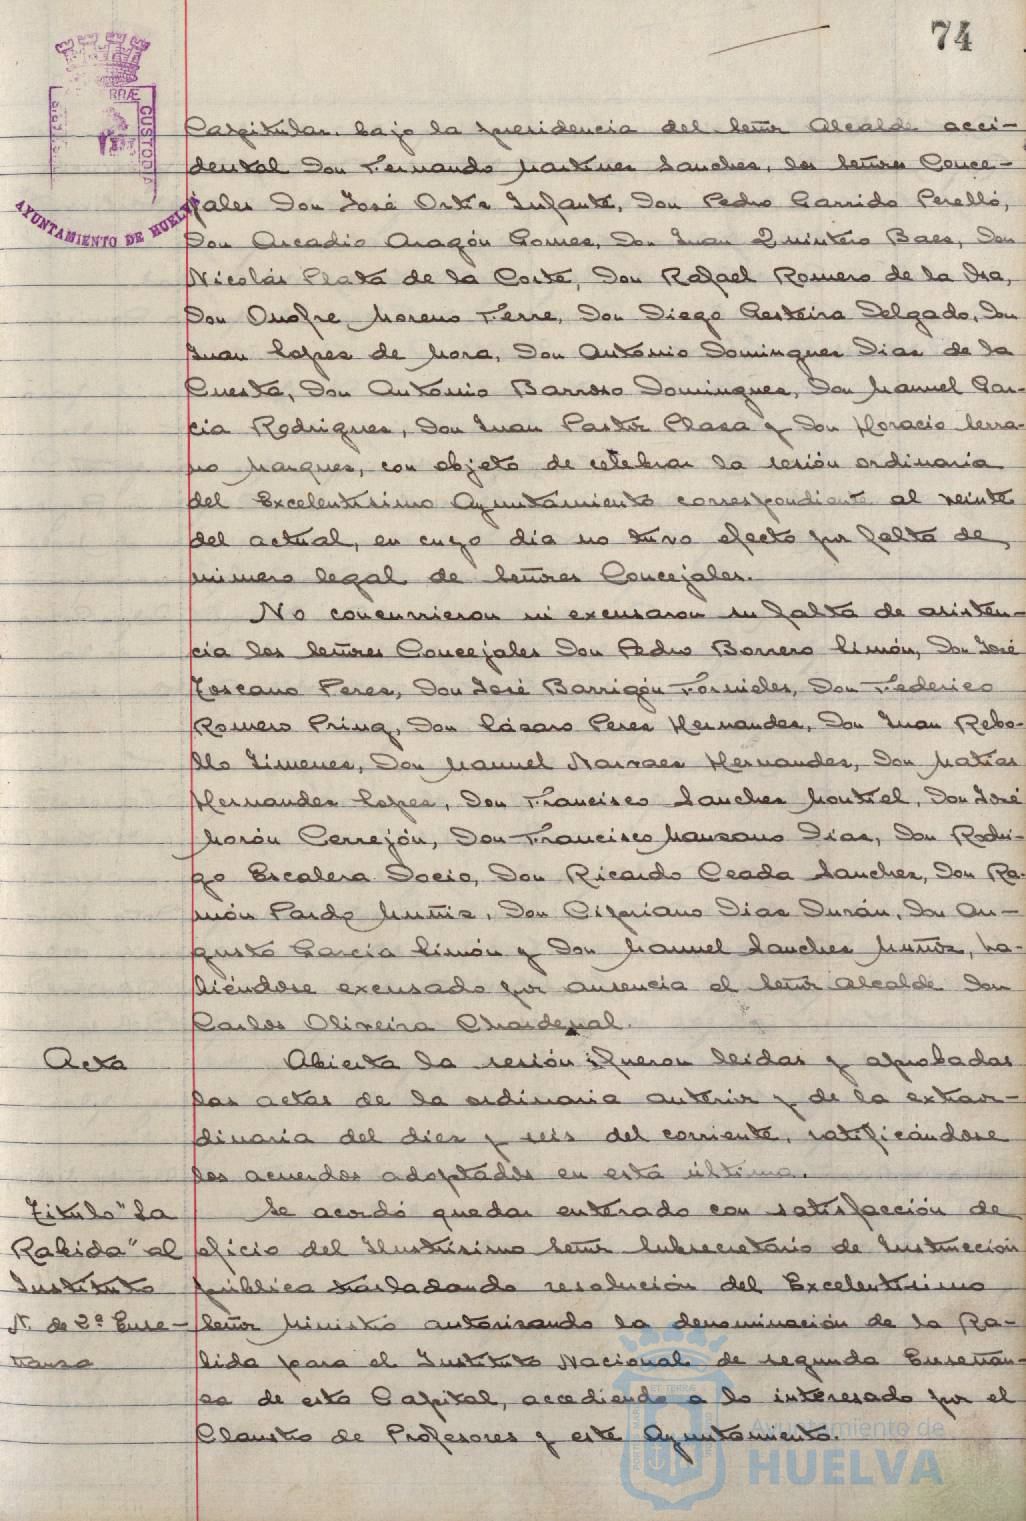 74
PORTUS MARIS ET TERRÆ CUSTODIA
AYUNTAMIENTO DE HUELVA
Capitular, bajo la presidencia del Señor Alcalde acci-
dental Don Fernando Martinez Sanchez, los Señores Conce-
jales Don José Ortiz Infante, Don Pedro Garrido Perelló,
Don Arcadio Aragón Gomez, Don Juan Quintero Baez, Don
Nicolás Plata de la Corte, Don Rafael Romero de la Osa,
Don Onofre Moreno Ferre, Don Diego Gesteira Delgado, Don
Juan Lopez de Mora, Don Antonio Dominguez Diaz de la
Cuesta, Don Antonio Barroso Dominguez, Don Manuel Gar-
cia Rodriguez, Don Juan Pastor Plaza y Don Horacio Serra-
no Marquez, con objeto de celebrar la sesión ordinaria
del Excelentísimo Ayuntamiento correspondiente al veinte
del actual, en cuyo día no tuvo efecto por falta de
número legal de Señores Concejales.
No concurrieron ni excusaron su falta de asisten-
cia los Señores Concejales Don Pedro Borrero Limón, Don José
Toscano Perez, Don José Barrigón Fornieles, Don Federico
Romero Prinz, Don Lázaro Perez Hernandez, Don Juan Rebo-
llo Jimenez, Don Manuel Narvaez Hernandez, Don Matías
Hernandez Lopez, Don Francisco Sanchez Montiel, Don José
Morón Cerrejón, Don Francisco Manzano Diaz, Don Rodri-
go Escalera Docio, Don Ricardo Ceada Sanchez, Don Ra-
món Pardo Muñiz, Don Cipriano Diaz Durán, Don Au-
gusto García Limón y Don Manuel Sanchez Muñoz, ha-
biéndose excusado por ausencia el Señor Alcalde Don
Carlos Oliveira Chardenal.
Acta
Abierta la sesión fueron leidas y aprobadas
las actas de la ordinaria anterior y de la extraor-
dinaria del diez y seis del corriente, ratificándose
los acuerdos adoptados en esta última.
Titulo "La
Rabida" al
Instituto
N. de 2ª Ense-
ñanza
Se acordó quedar enterado con satisfacción de
oficio del Ilustrísimo Señor Subsecretario de Instrucción
pública trasladando resolución del Excelentísimo
Señor Ministro autorizando la denominación de la Ra-
bida para el Instituto Nacional de segunda Enseñan-
za de esta Capital, accediendo a lo interesado por el
Claustro de Profesores y este Ayuntamiento.
Ayuntamiento de
HUELVA